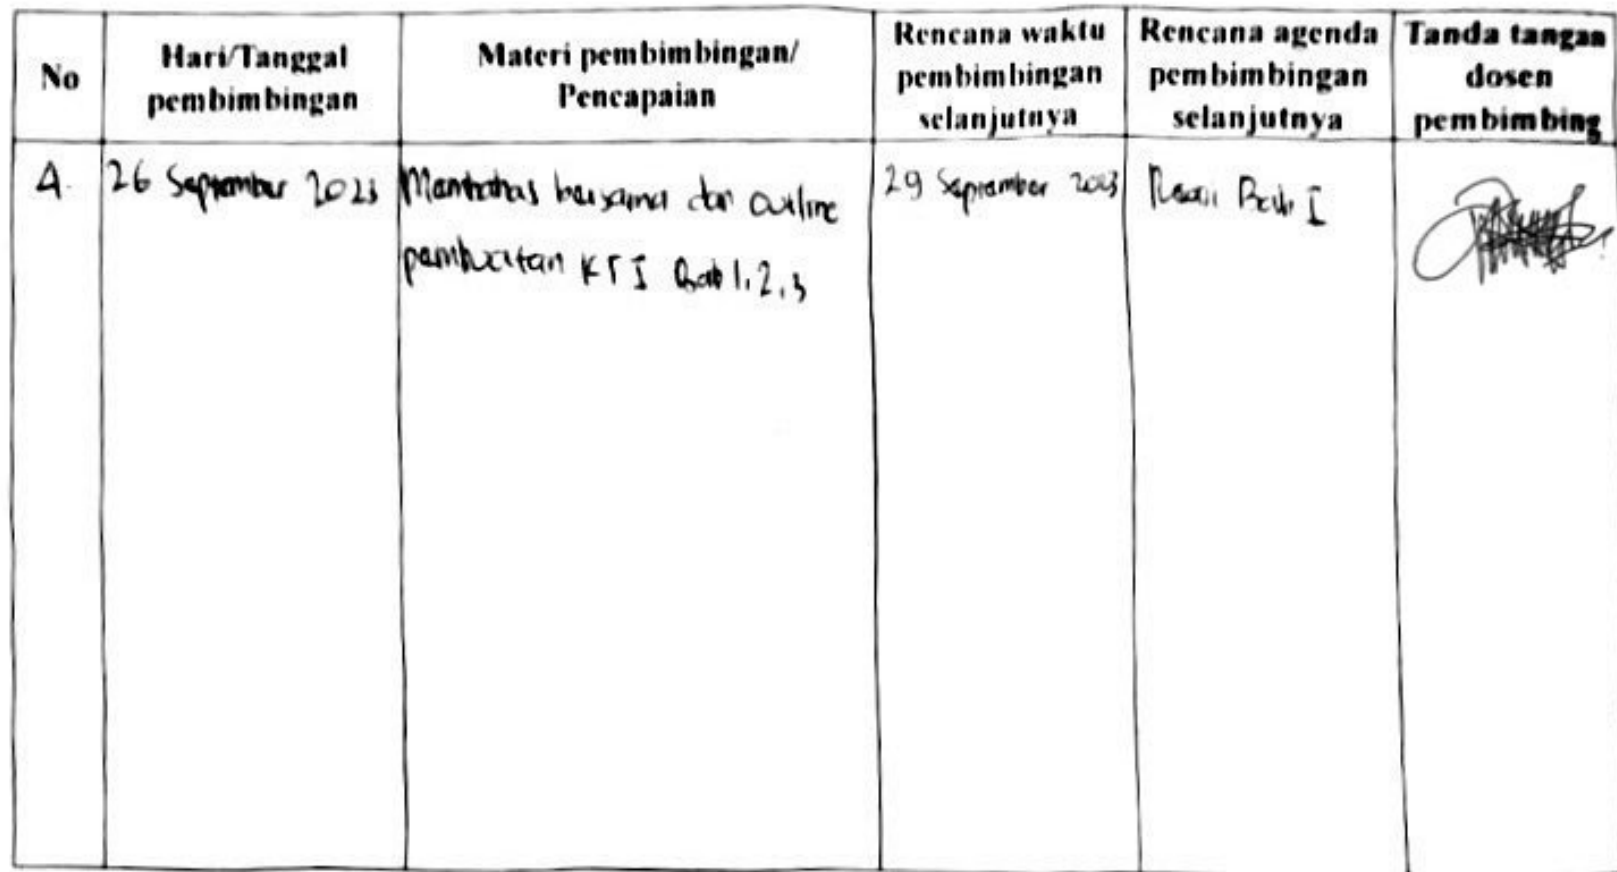 No
Hari/Tanggal
pembimbingan
Materi pembimbingan/
Pencapaian
Rencana waktu
pembimbingan
selanjutnya
Rencana agenda
pembimbingan
selanjutnya
Tanda tangan
dosen
pembimbing
4.
26 September 2023
Membahas bersama dan outline
pembuatan KTI Bab 1, 2, 3
29 September 2023
Bab I